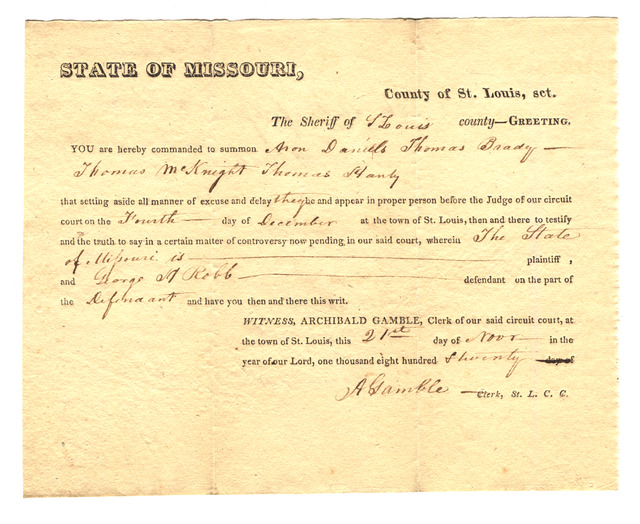 STATE OF MISSOURI,
County of St. Louis, sct.
The Sheriff of St Louis county—GREETING.
YOU are hereby commanded to summon Aron Daniels Thomas Brady —
Thomas McKnight Thomas Hanly
that setting aside all manner of excuse and delay they be and appear in proper person before the Judge of our circuit
court on the Fourth — day of December at the town of St. Louis, then and there to testify
and the truth to say in a certain matter of controversy now pending in our said court, wherein The State
of Missouri is — plaintiff,
and George A Robb — defendant on the part of
the Defendant and have you then and there this writ.
WITNESS, ARCHIBALD GAMBLE, Clerk of our said circuit court, at
the town of St. Louis, this 21st day of Novr in the
year of our Lord, one thousand eight hundred & twenty day of
A Gamble — Clerk, St. L. C. C.